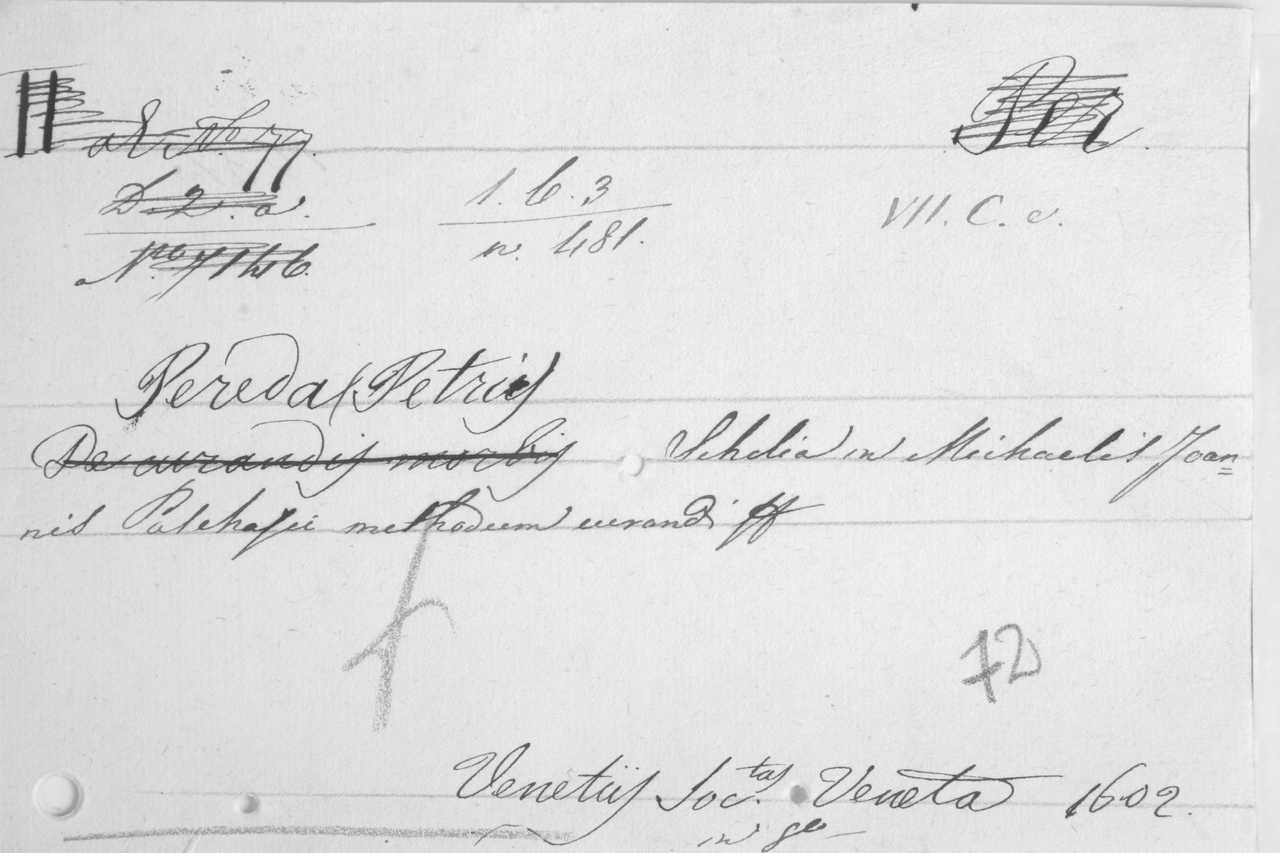 Per
D. 2. a.
1. b. 3
VII. C. c.
n. 481.
Pereda (Petrus)
De curandis morbis Scholia in Michaelis Joan=
nis Paschasii methodum curandi ff
72
Venetiis Soc.tas Veneta 1602.
in 8o